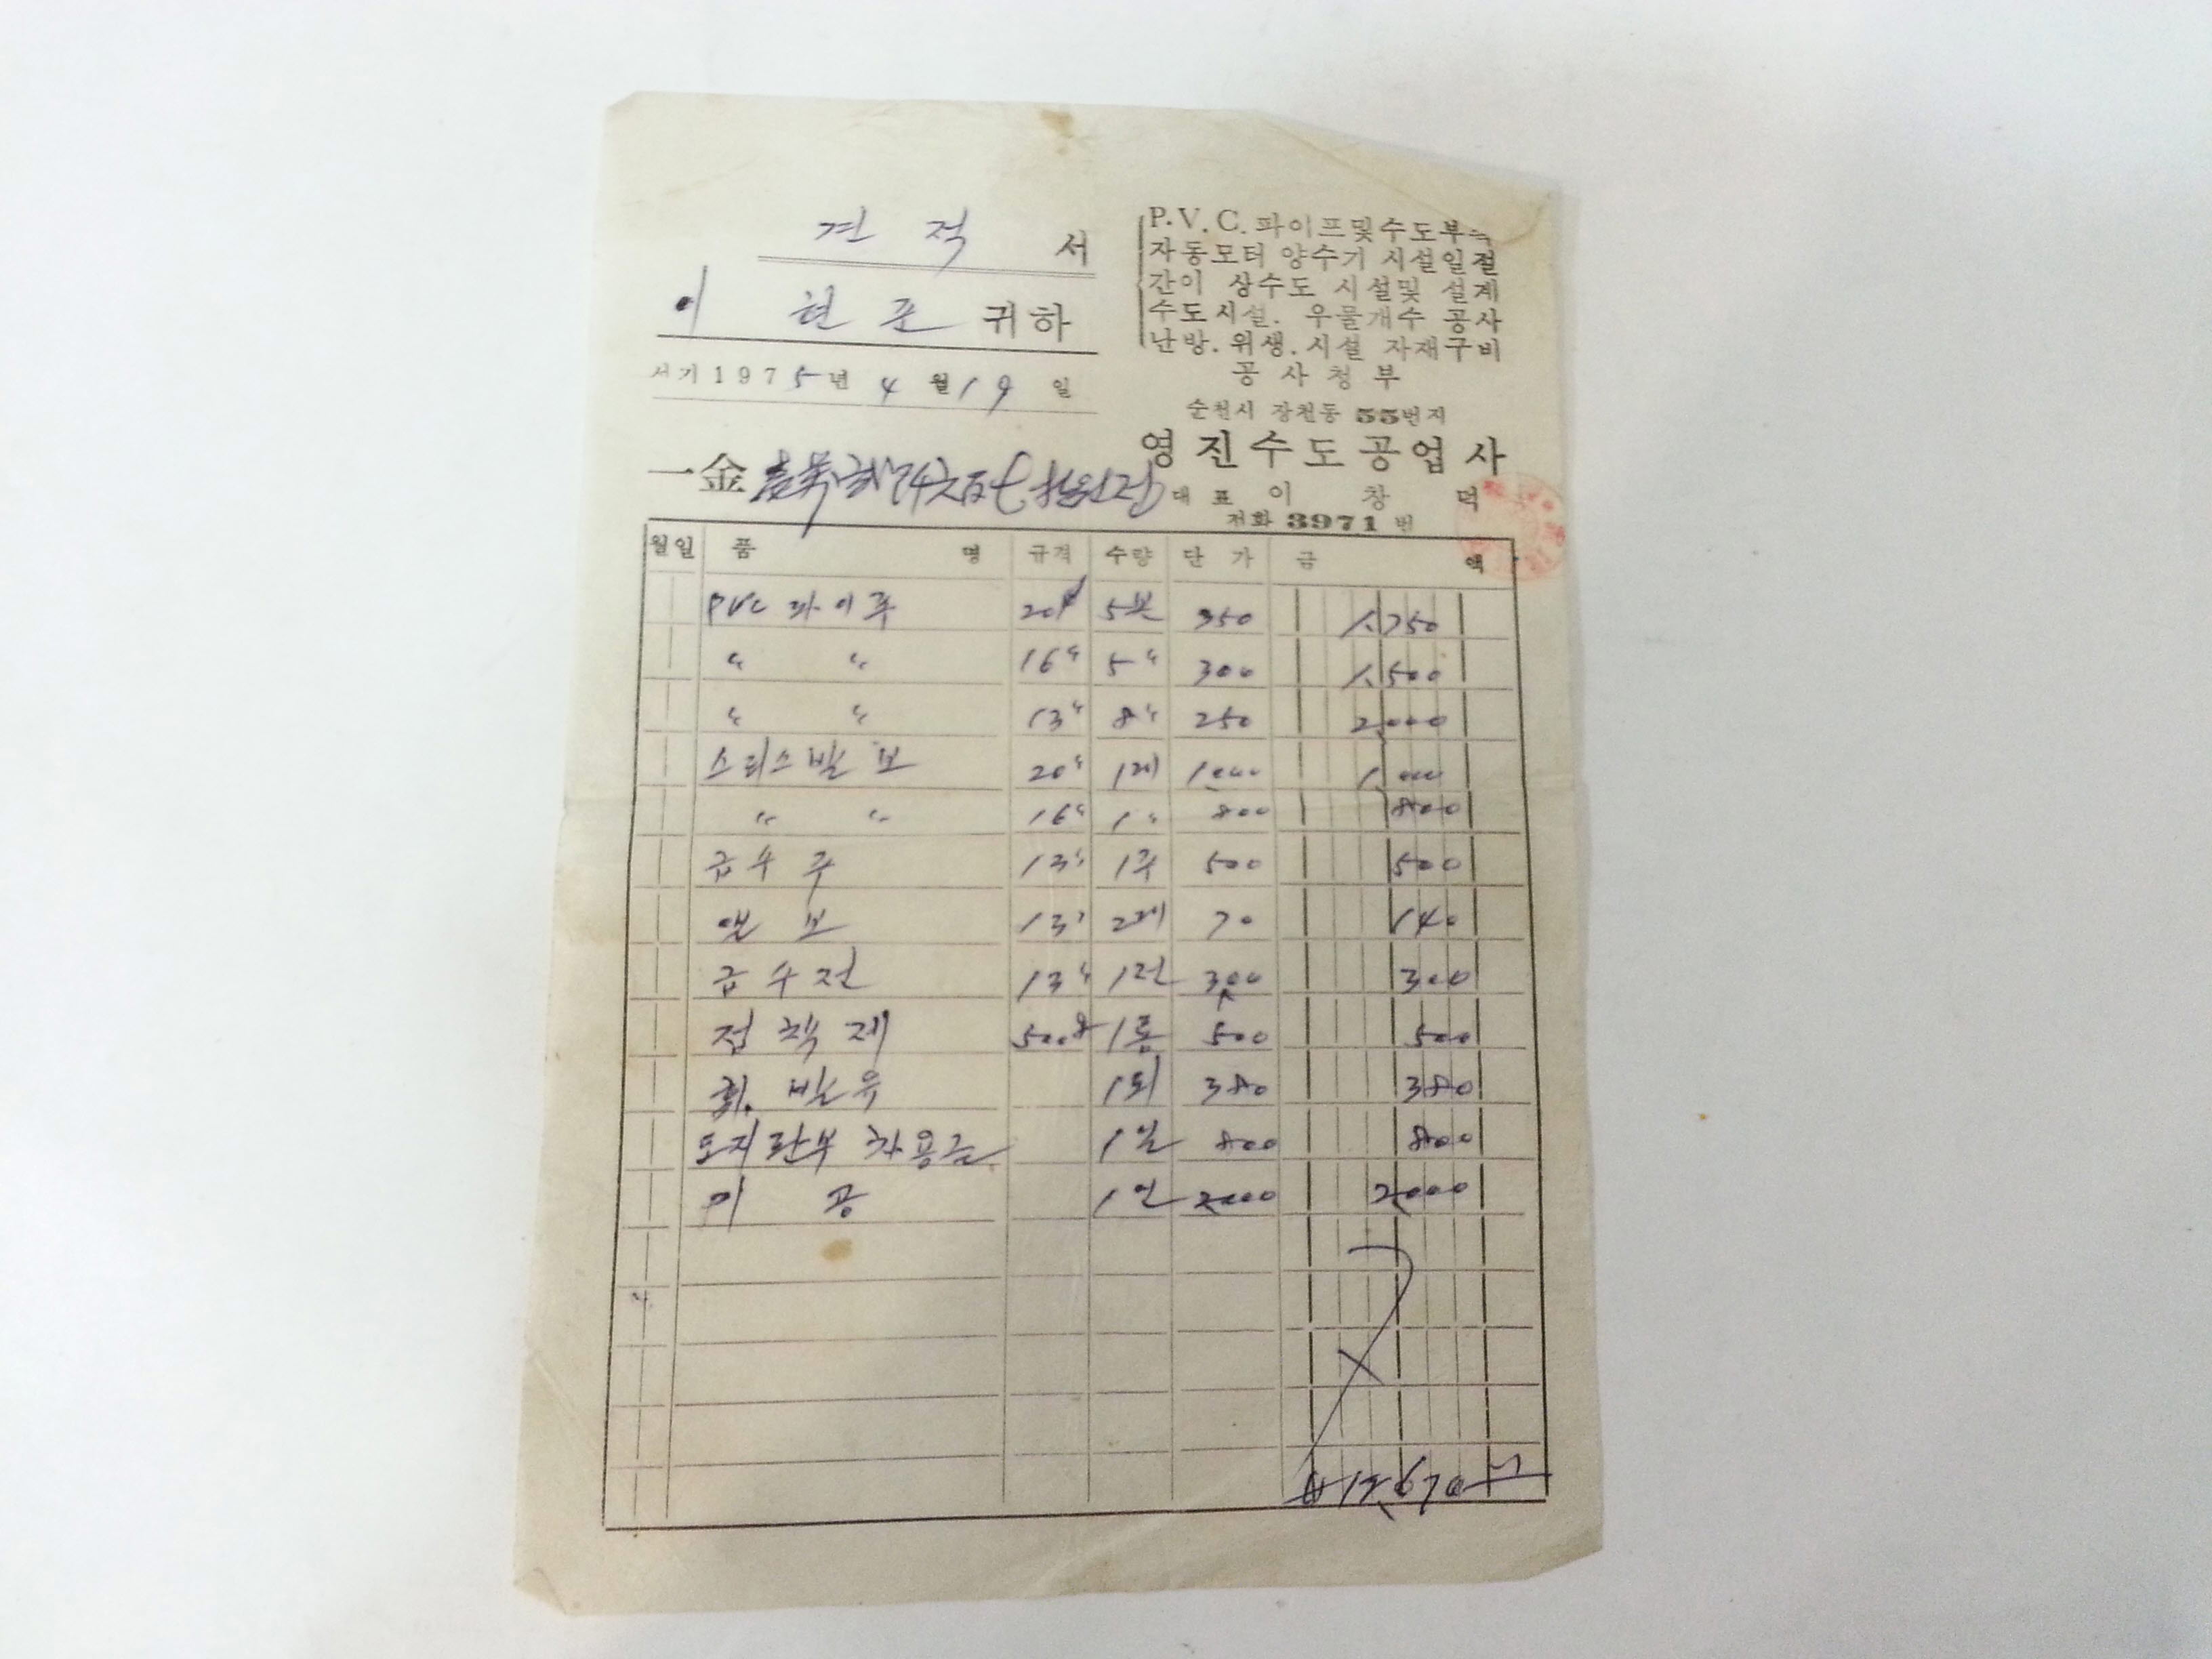 견적서
이현준 귀하
서기 1975년 4월 19일
P.V.C. 파이프및수도부속
자동모터 양수기 시설일절
간이 상수도 시설및 설계
수도시설. 우물개수 공사
난방. 위생. 시설 자재구비
공사청부
순천시 장천동 55번지
영진수도공업사
대표 이창덕
전화 3971 번
一金
월일 품명 규격 수량 단가 금액
PVC 파이푸 20% 5본 350 1,750
" " 16" 5" 300 1,500
" " 13" 8" 250 2,000
스톱밸보 20" 1개 1,000 1,000
" " 16" 1" 800 800
급수주 13" 1주 500 500
엘보 13" 2개 70 140
급수전 13" 1전 300 300
접착제 500g 1통 500 500
휘발유 1되 380 380
도지란부 차용금 1일 800 800
기공 1인 2,000 2,000
₩12,670